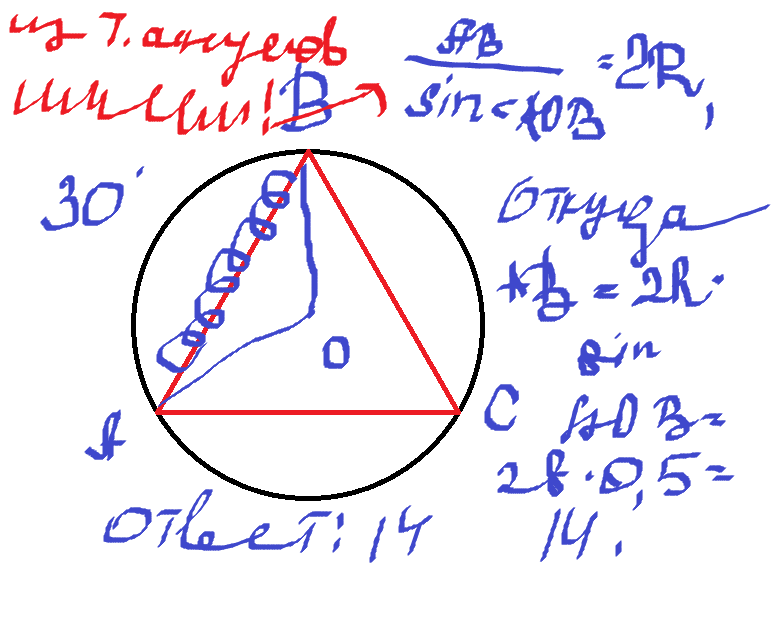 из т.
B
AB / sin<AOB = 2R,
30°
Откуда
AB = 2R·
sin
AOB=
2R·0,5=
14.
O
A
C
Ответ: 14